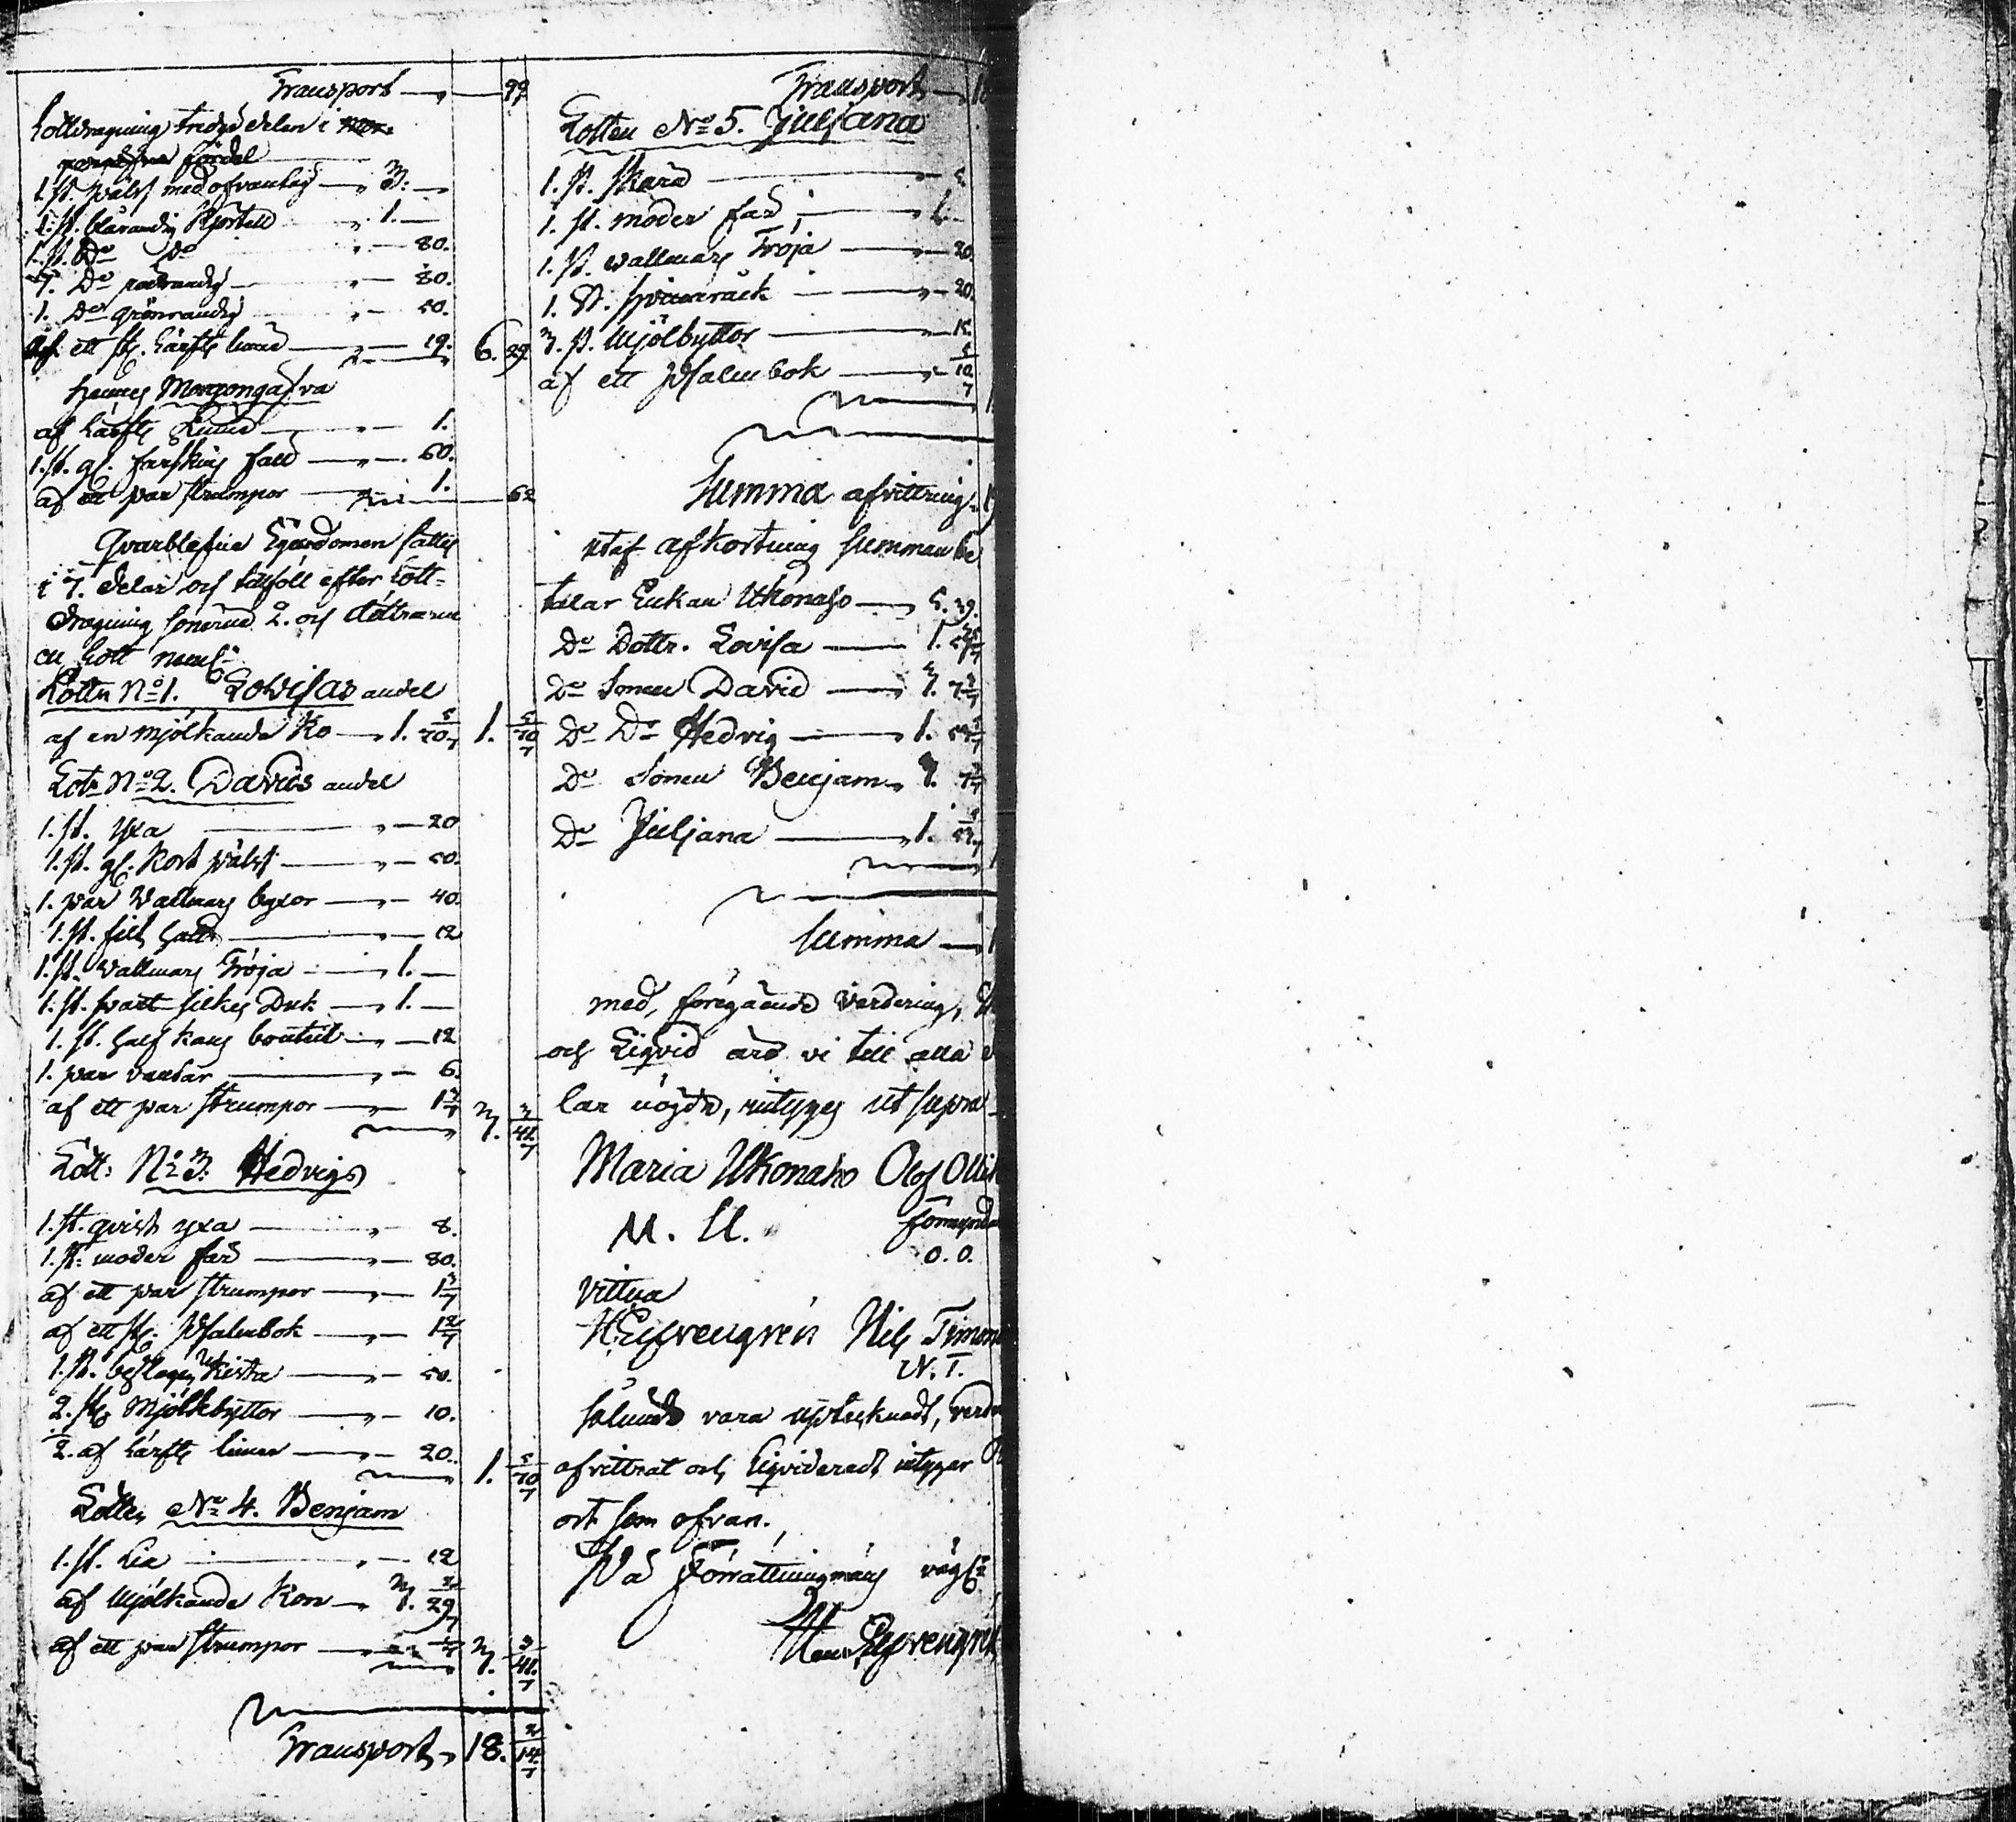 Transport — 99
Lottdragning tredje delen i
fördel
1. st. päls med ofvantyg — 3. —
1. st. blårandig Kjortell — 1. —
1. st. Do Do — 80.
1. Do rödrandig — 80.
1. Do grönrandig — 50.
Af ett st. Lärfts linne — 19. 6. 29
Hennes Morgongåfva
af Lärfts Linne — 1.
1. st. gl. farskins fäll — 60.
af ett par strumpor — 1. 62
Qvarblefne Egendomen sattes
i 7. delar och tillföll efter Lott-
dragning sönerne 2. och döttrarne
en Lott neml:
Lotten No 1. Lovisas andel
af en mjölkande Ko — 1. 70 5/7 1. 70 5/7
Lott No 2. Davids andel
1. st. yxa — 20
1. st. gl. Kort päls — 50.
1. par Vallmars byxor — 40.
1. st. filt hatt — 12
1. st. Vallmars Tröja — 1. —
1. st. svart silkes Duk — 1. —
1. st. half kans boutul — 12
1. par vantar — 6.
af ett par strumpor — 1 3/7 3. 41 3/7
Lott: No 3. Hedvigs
1. st. qvist yxa — 8.
1. st. moder får — 80.
af ett par strumpor — 1 3/7
af ett st. Psalmbok — 1 2/7
1. st. beslagen Kista — 50.
2. st. Mjölkbyttor — 10.
2. af Lärfts linne — 20. 1. 70 5/7
Lotten No 4. Benjam
1. st. Lia — 12
af Mjölkande Kon — 3. 29 2/7
af ett par strumpor — 1/7 3. 41 3/7
Transport, 18. 14 2/7
Transport
Lotten No 5. Juljana
1. st. skära — 5.
1. st. moder får — 1. —
1. st. vallmars Tröja — 20.
1. st. spinnråck — 20.
3. st. Mjölbyttor — 15.
af ett Psalmbok — 10 5/7
Summa afvittring
utaf afkortning summan be
talar Enkan Ukonaho — 5. 39.
Do Dottr. Lovisa — 1.
Do Sonen David — 3. 7 3/7
Do Do Hedvig — 1.
Do Sonen Benjam 3. 7 3/7
Do Juljana — 1.
Summa
med, föregående Värdering,
och Liqvid äro vi till alla
lar nöjde, intyges ut supra
Maria Ukonaho Olof Olli
M. U. Förmynd
O. O.
Vittna
H Elfvengren Nils Timon
N. T.
Sålunda vara uptecknadt, verd
afvittrat och Liqvideradt intygar
ort som ofvan.
På Förrättningmäns vägl:
Elfvengren